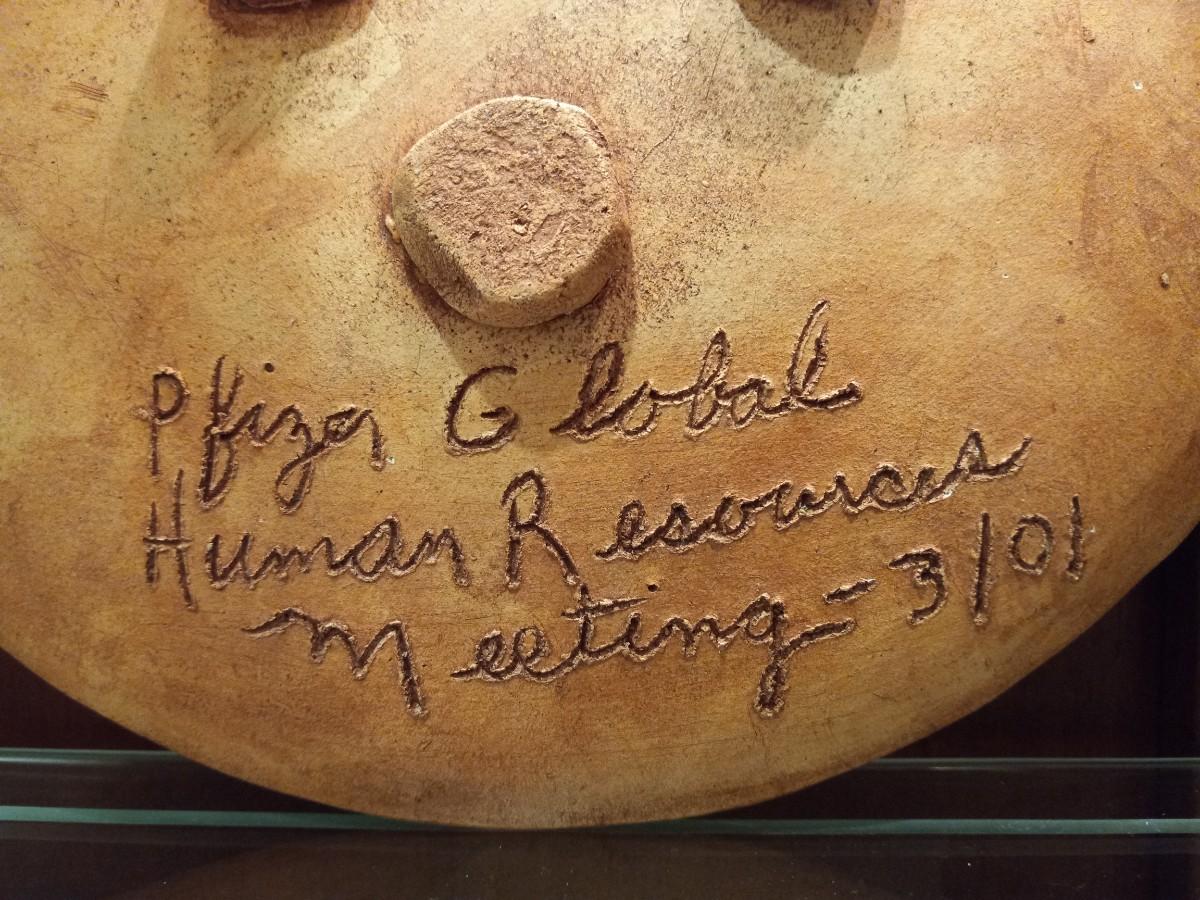 Pfizer Global
Human Resources
Meeting - 3/01